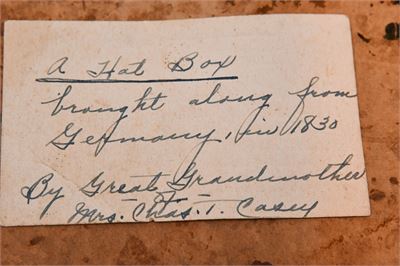 A Hat Box
brought along from
Germany, in 1830
By Great Grandmother
Mrs. Chas. T. Casey